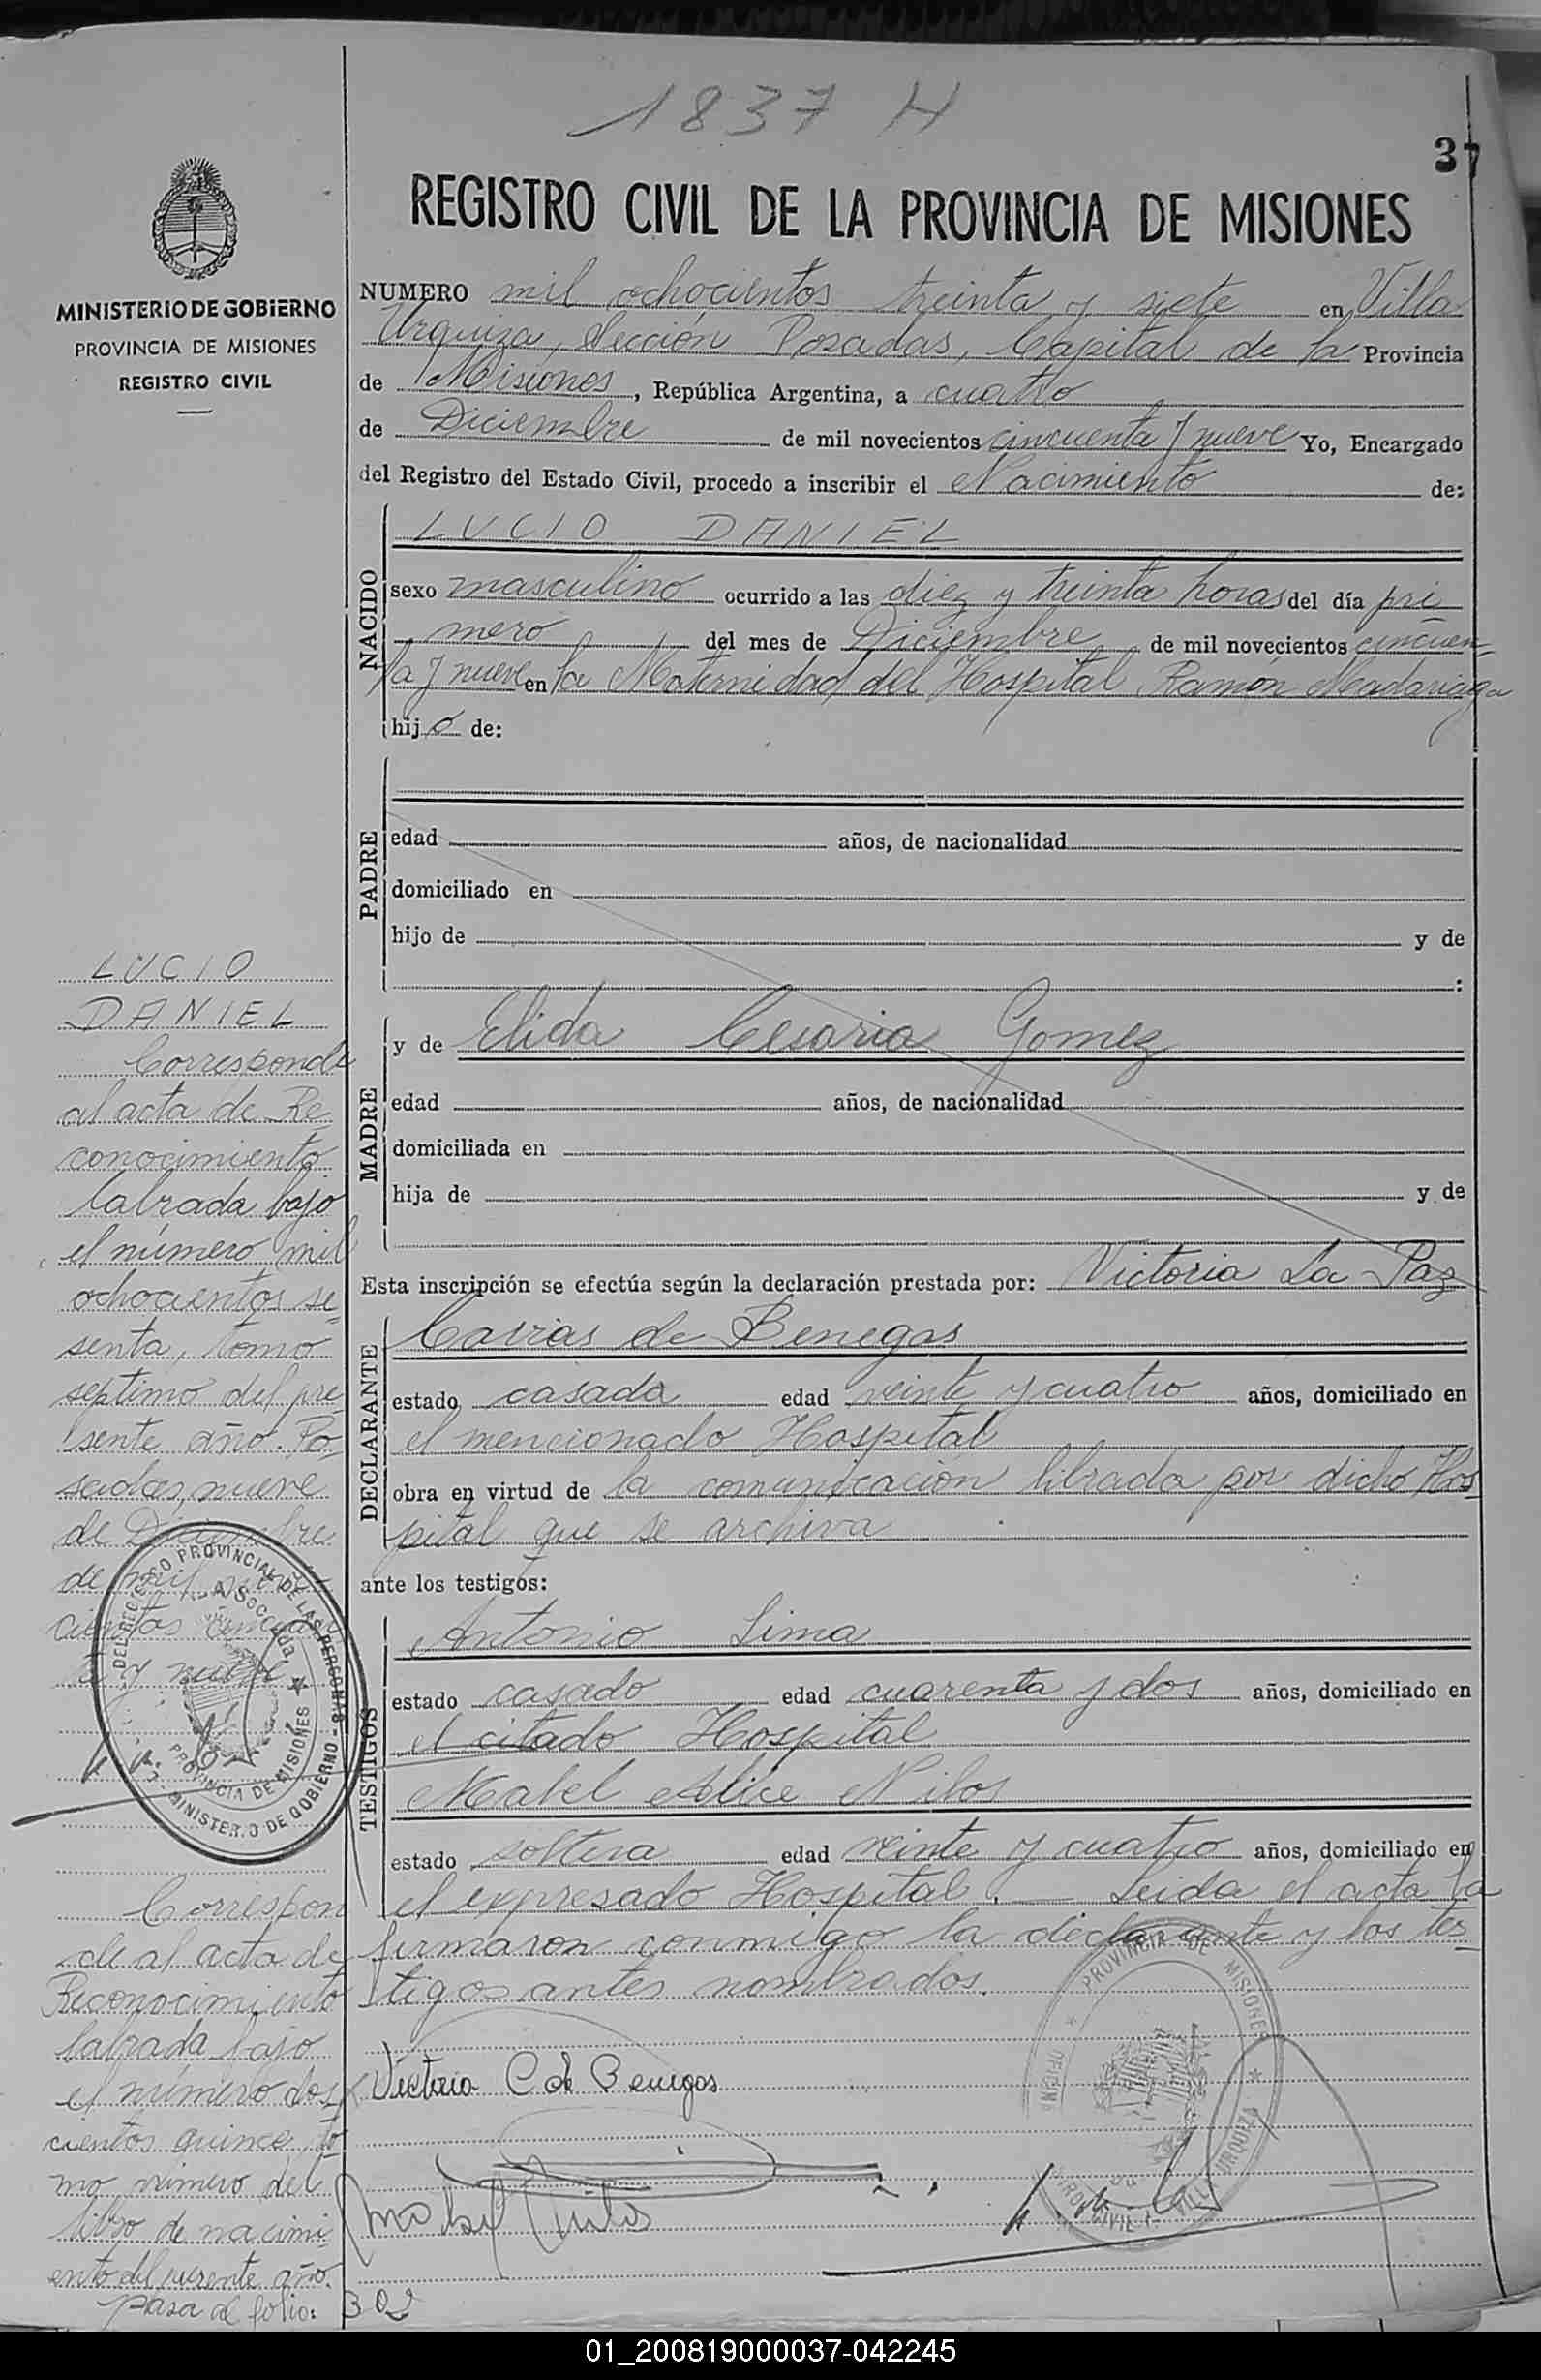 1837 H
37
REGISTRO CIVIL DE LA PROVINCIA DE MISIONES
MINISTERIO DE GOBIERNO
PROVINCIA DE MISIONES
REGISTRO CIVIL
NUMERO mil ochocientos treinta y siete en Villa
Urquiza, Sección Posadas, Capital de la Provincia
de Misiones, República Argentina, a cuatro
de Diciembre de mil novecientos cincuenta y nueve Yo, Encargado
del Registro del Estado Civil, procedo a inscribir el Nacimiento de:
NACIDO
LUCIO DANIEL
sexo masculino ocurrido a las diez y treinta horas del día pri
mero del mes de Diciembre de mil novecientos cincuen-
ta y nueve en la Maternidad del Hospital Ramón Madariaga
hijo de:
PADRE
edad años, de nacionalidad
domiciliado en
hijo de y de
:
MADRE
y de Elida Cesaria Gomez
edad años, de nacionalidad
domiciliada en
hija de y de
Esta inscripción se efectúa según la declaración prestada por: Victoria La Paz
DECLARANTE
Carias de Benegas
estado casada edad veinte y cuatro años, domiciliado en
el mencionado Hospital
obra en virtud de la comunicación librada por dicho Hos
pital que se archiva
ante los testigos:
TESTIGOS
Antonio Lima
estado casado edad cuarenta y dos años, domiciliado en
el citado Hospital
Mabel Alice Nilos
estado soltera edad veinte y cuatro años, domiciliado en
el expresado Hospital. — Leida el acta la
firmaron conmigo la declarante y los tes-
tigos antes nombrados.
Victoria C de Benegas
PROVINCIA DE MISIONES
LUCIO
DANIEL
Corresponde
al acta de Re
conocimiento
labrada bajo
el número mil
ochocientos se
senta, tomo
septimo del pre
sente año. Po-
sadas, nueve
de Diciembre
de mil nove-
cientos cincuen
ta y nueve
DEL REGISTRO PROVINCIAL DE LAS PERSONAS - MINISTERIO DE GOBIERNO
PROVINCIA DE MISIONES
Correspon
de al acta de
Reconocimiento
labrada bajo
el número dos-
cientos quince, to
mo primero del
libro de nacimi
ento del presente año.
pasa al folio: 302
01_200819000037-042245